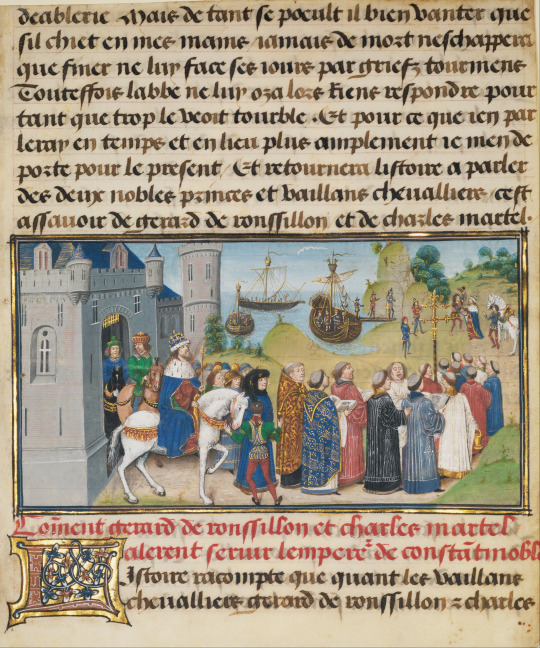 deablerie Mais de tant se poeult il bien vanter que
sil chiet en mes mains iamais de mort neschappera
que finer ne luy face ses iours par griefz tourmens
Touteffois labbe ne luy oza lors riens respondre pour
tant que trop le veoit tourble . Et pour ce que ien par
leray en temps et en lieu plus amplement ie men de
porte pour le present / Et retournera listoire a parler
des deux nobles princes et vaillans chevalliers cest
assavoir de gerard de roussillon et de charles martel .
Coment gerard de roussillon et charles martel
alerent servir lempereʳ de constãtinoble
Listoire racompte que quant les vaillans
chevalliers gerard de roussillon ⁊ charles